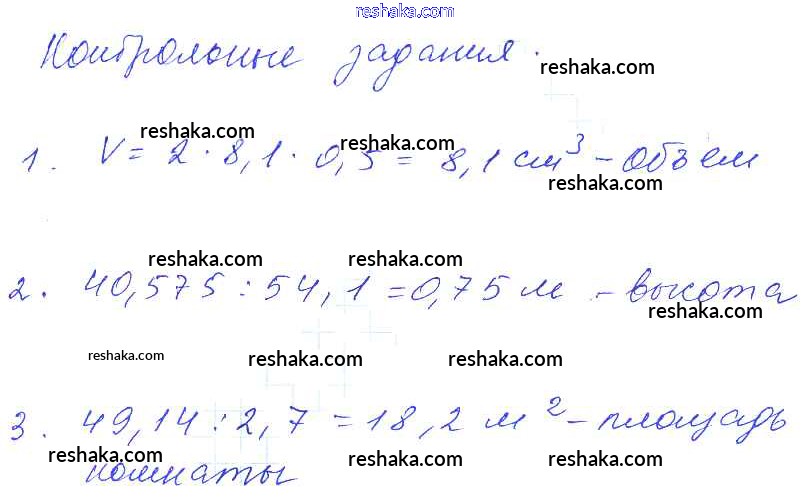 reshaka.com
Контрольные задания.
reshaka.com
reshaka.com reshaka.com
1. V = 2 · 8,1 · 0,5 = 8,1 см³ - объем
reshaka.com
reshaka.com reshaka.com
2. 40,575 : 54,1 = 0,75 м - высота
reshaka.com
reshaka.com reshaka.com reshaka.com
3. 49,14 : 2,7 = 18,2 м² - площадь
reshaka.com reshaka.com reshaka.com
комнаты